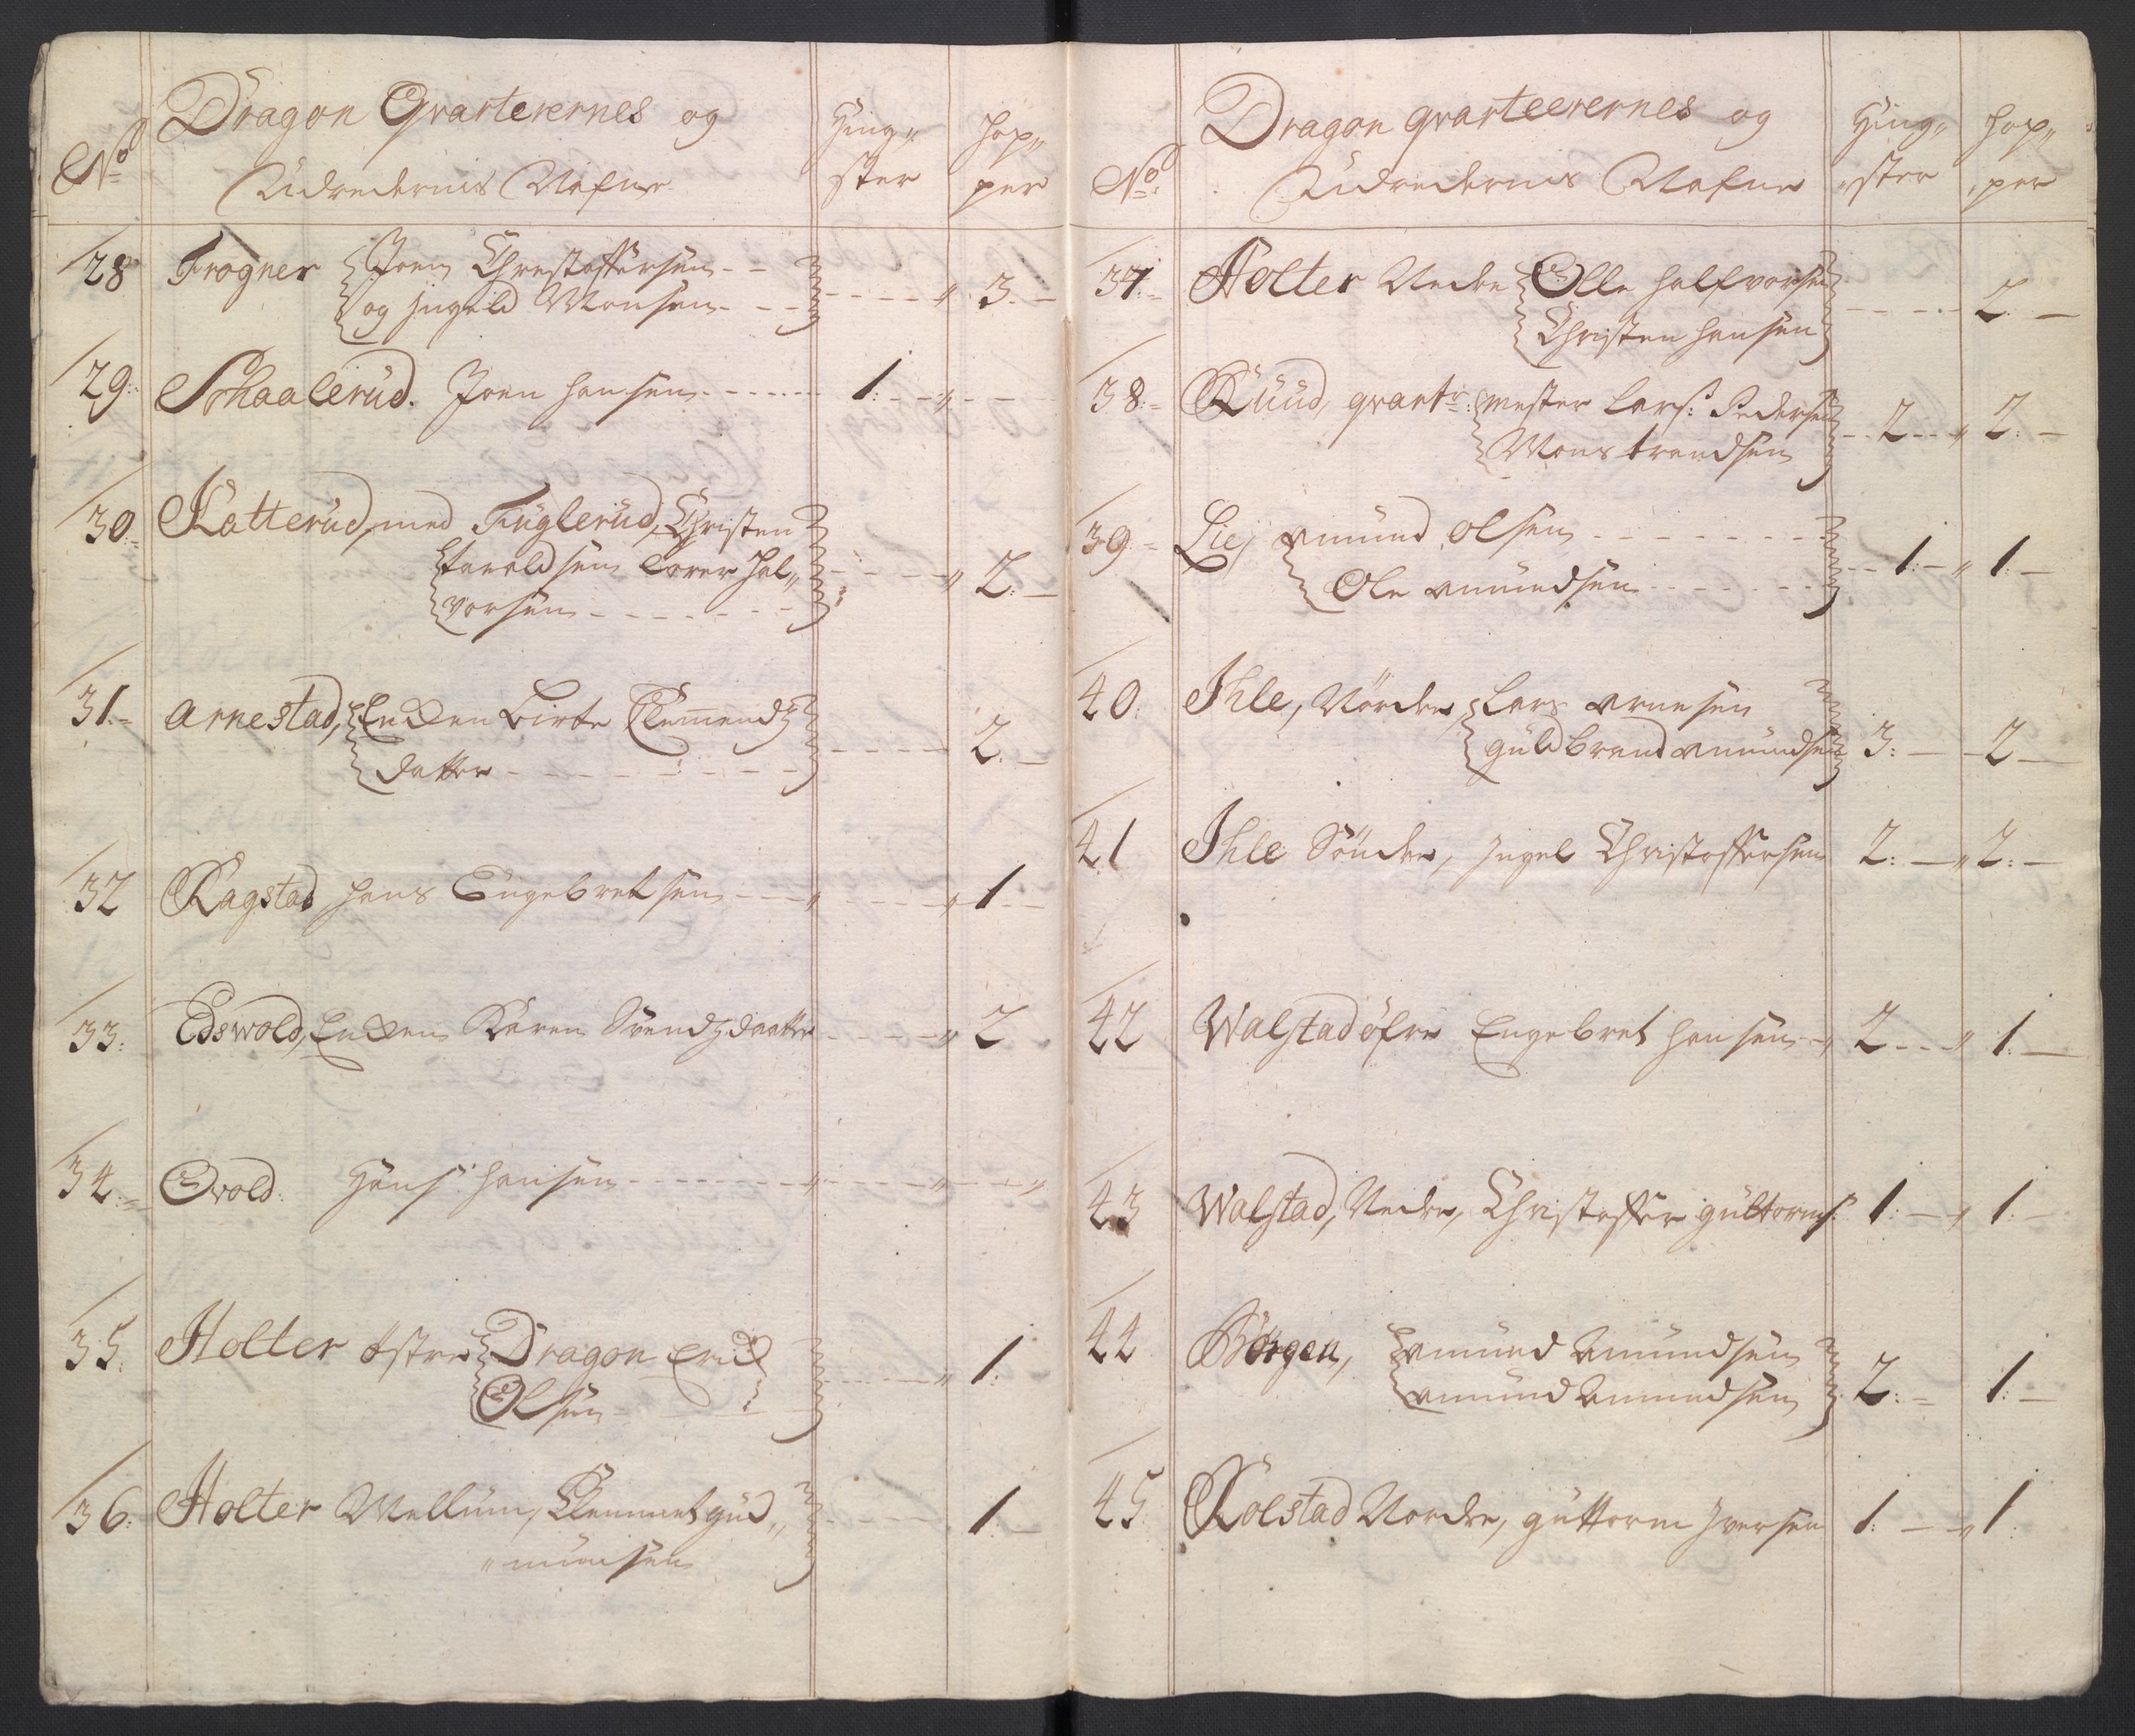 No
Dragon Qvarterernes og
Udredernis Nafne
Hing„
ster
Hop„
per
28 Frogner Joen Christoffersen - -
og Ingeld Monsen - - - „ 3. -
29: Schaalerud. Joen Hansen - - - 1. - - „ - -
30 Katterud, med Fuglerud, Christen
Haraldsen Corer Hal„
vorsen - - - - „ 2. -
31. Arnestad, Encken Birte Clemendz
datter - - - - 2. -
32 Ragstad Hans Engebretsen - - „ - - „ 1. -
33: Edswold, Encken Karen Svendzdaatter - - - „ 2
34: Owold: Hans Hansen - - - „ - - „ - - „
35: Holter Østre Dragon Erick
Olsen - - - „ 1:
36: Holter Mellum, Clemmet Gud„
„munsen - - - 1: -
No:
Dragon qvarteerernes og
Udredernis Nafne
Hing„
„ster
Hop„
„per
37: Holter Nedre Olle Halfvorsen
Christen Hansen - - - 2. -
38: Ruud, qvartr: mester Lars: Pedersen
Mons trandsen - - 2 - - „ 2. -
39: Lie, Amund Olsen - - - -
Ole Amundsen - - - - 1. - „ 1. -
40: Ihle, Nordre, Lars Arnesen
Guldbrand Amundsen 3: - - 2 -
41 Ihle Söndre, Ingel Christoffersen 2: - „ 2: -
42 Walstad øfre Engebret Hansen - „ 2 - - „ 1. -
43 Walstad, Nedre, Christoffer Guttorms: 1: - „ 1: -
44 Börgen, Amund Amundsen
Amund Amundsen 2: - 1: -
45 Kolstad Nordre, Guttorm Iversen 1: - „ 1: